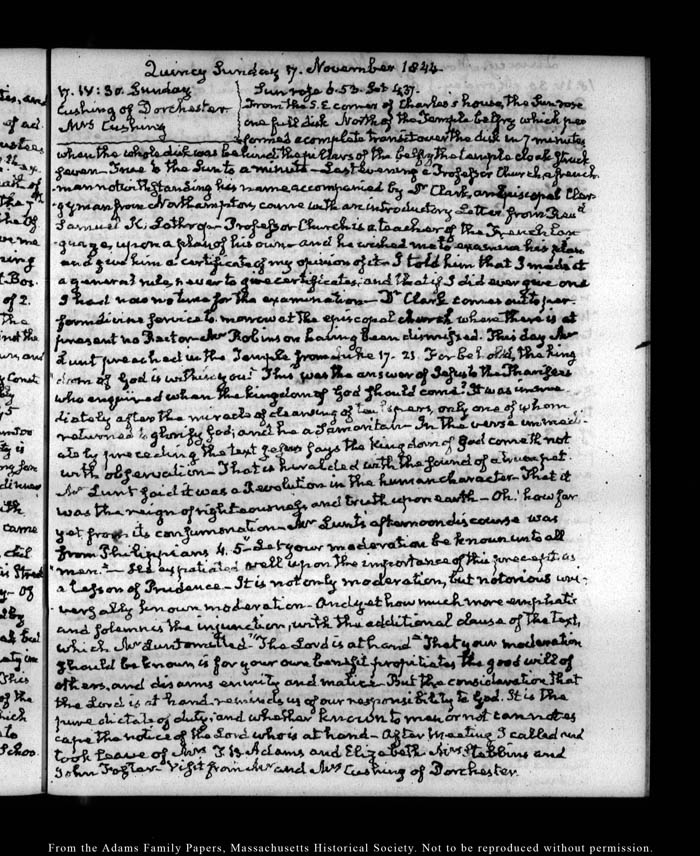 Quincy Sunday 17. November 1844.
17. IV:30. Sunday
Cushing of Dorchester
Mrs Cushing
Sun rose 6.53. Set 4.37.
From the S.E corner of Charles's house, the Sun rose
one full disk North of the Temple belfry which per
formed a complete transit over the disk in 7 minutes
when the whole disk was behind the pillars of the belfry the temple clock struck
seven. True to the Sun to a minute— Last evening a Professor Church, a french
man notwithstanding his name accompanied by Dr Clark, an Episcopal Cler-
gyman from Northampton, came with an introductory Letter from Revd
Samuel K. Lothrop— Professor Church is a teacher of the French Lan
guage, upon a plan of his own— and he wished me to examine his plan
and give him a certificate of my opinion of it— I told him that I made it
a general rule, never to give certificates; and that if I did ever give one
I had now no time for the examination— Dr Clark comes out to per
form divine service to morrow at the episcopal church where there is at
present no Rector— Mr Robinson having been dismissed. This day Mr
Lunt preached in the Temple from Luke 17. 21. For behold, the king
dom of God is within you! This was the answer of Jesus to the Pharisees
who enquired when the kingdom of God should come? It was imme
diately after the miracle of cleansing of ten lepers, only one of whom
returned to glorify God; and he a Samaritan— In the verse immedi-
ately preceding the text Jesus says the Kingdom of God cometh not
with observation— That is heralded with the sound of a trumpet.
Mr Lunt said it was a Revolution in the human character— That it
was the reign of righteousness and truth upon earth— Oh! how far
yet from its consummation— Mr Lunt's afternoon discourse was
from Philippians 4. 5. "Let your moderation be known unto all
men."— He expatiated well upon the importance of this precept as
a lesson of Prudence— It is not only moderation, but notorious uni-
versally known moderation— And yet how much more emphatic
and solemn is the injunction, with the additional clause of the text,
which Mr Lunt omitted— "The Lord is at hand" That your moderation
should be known is for your own benefit propitiates the good will of
others, and disarms enmity and malice. But the consideration that
the Lord is at hand reminds us of our responsibility to God. It is the
pure dictate of duty, and whether known to men or not can not es
cape the notice of the Lord who is at hand— After meeting I called and
took leave of Mrs T B Adams and Elizabeth Mrs Stebbins and
John Foster— Visit from Mr and Mrs Cushing of Dorchester.
From the Adams Family Papers, Massachusetts Historical Society. Not to be reproduced without permission.